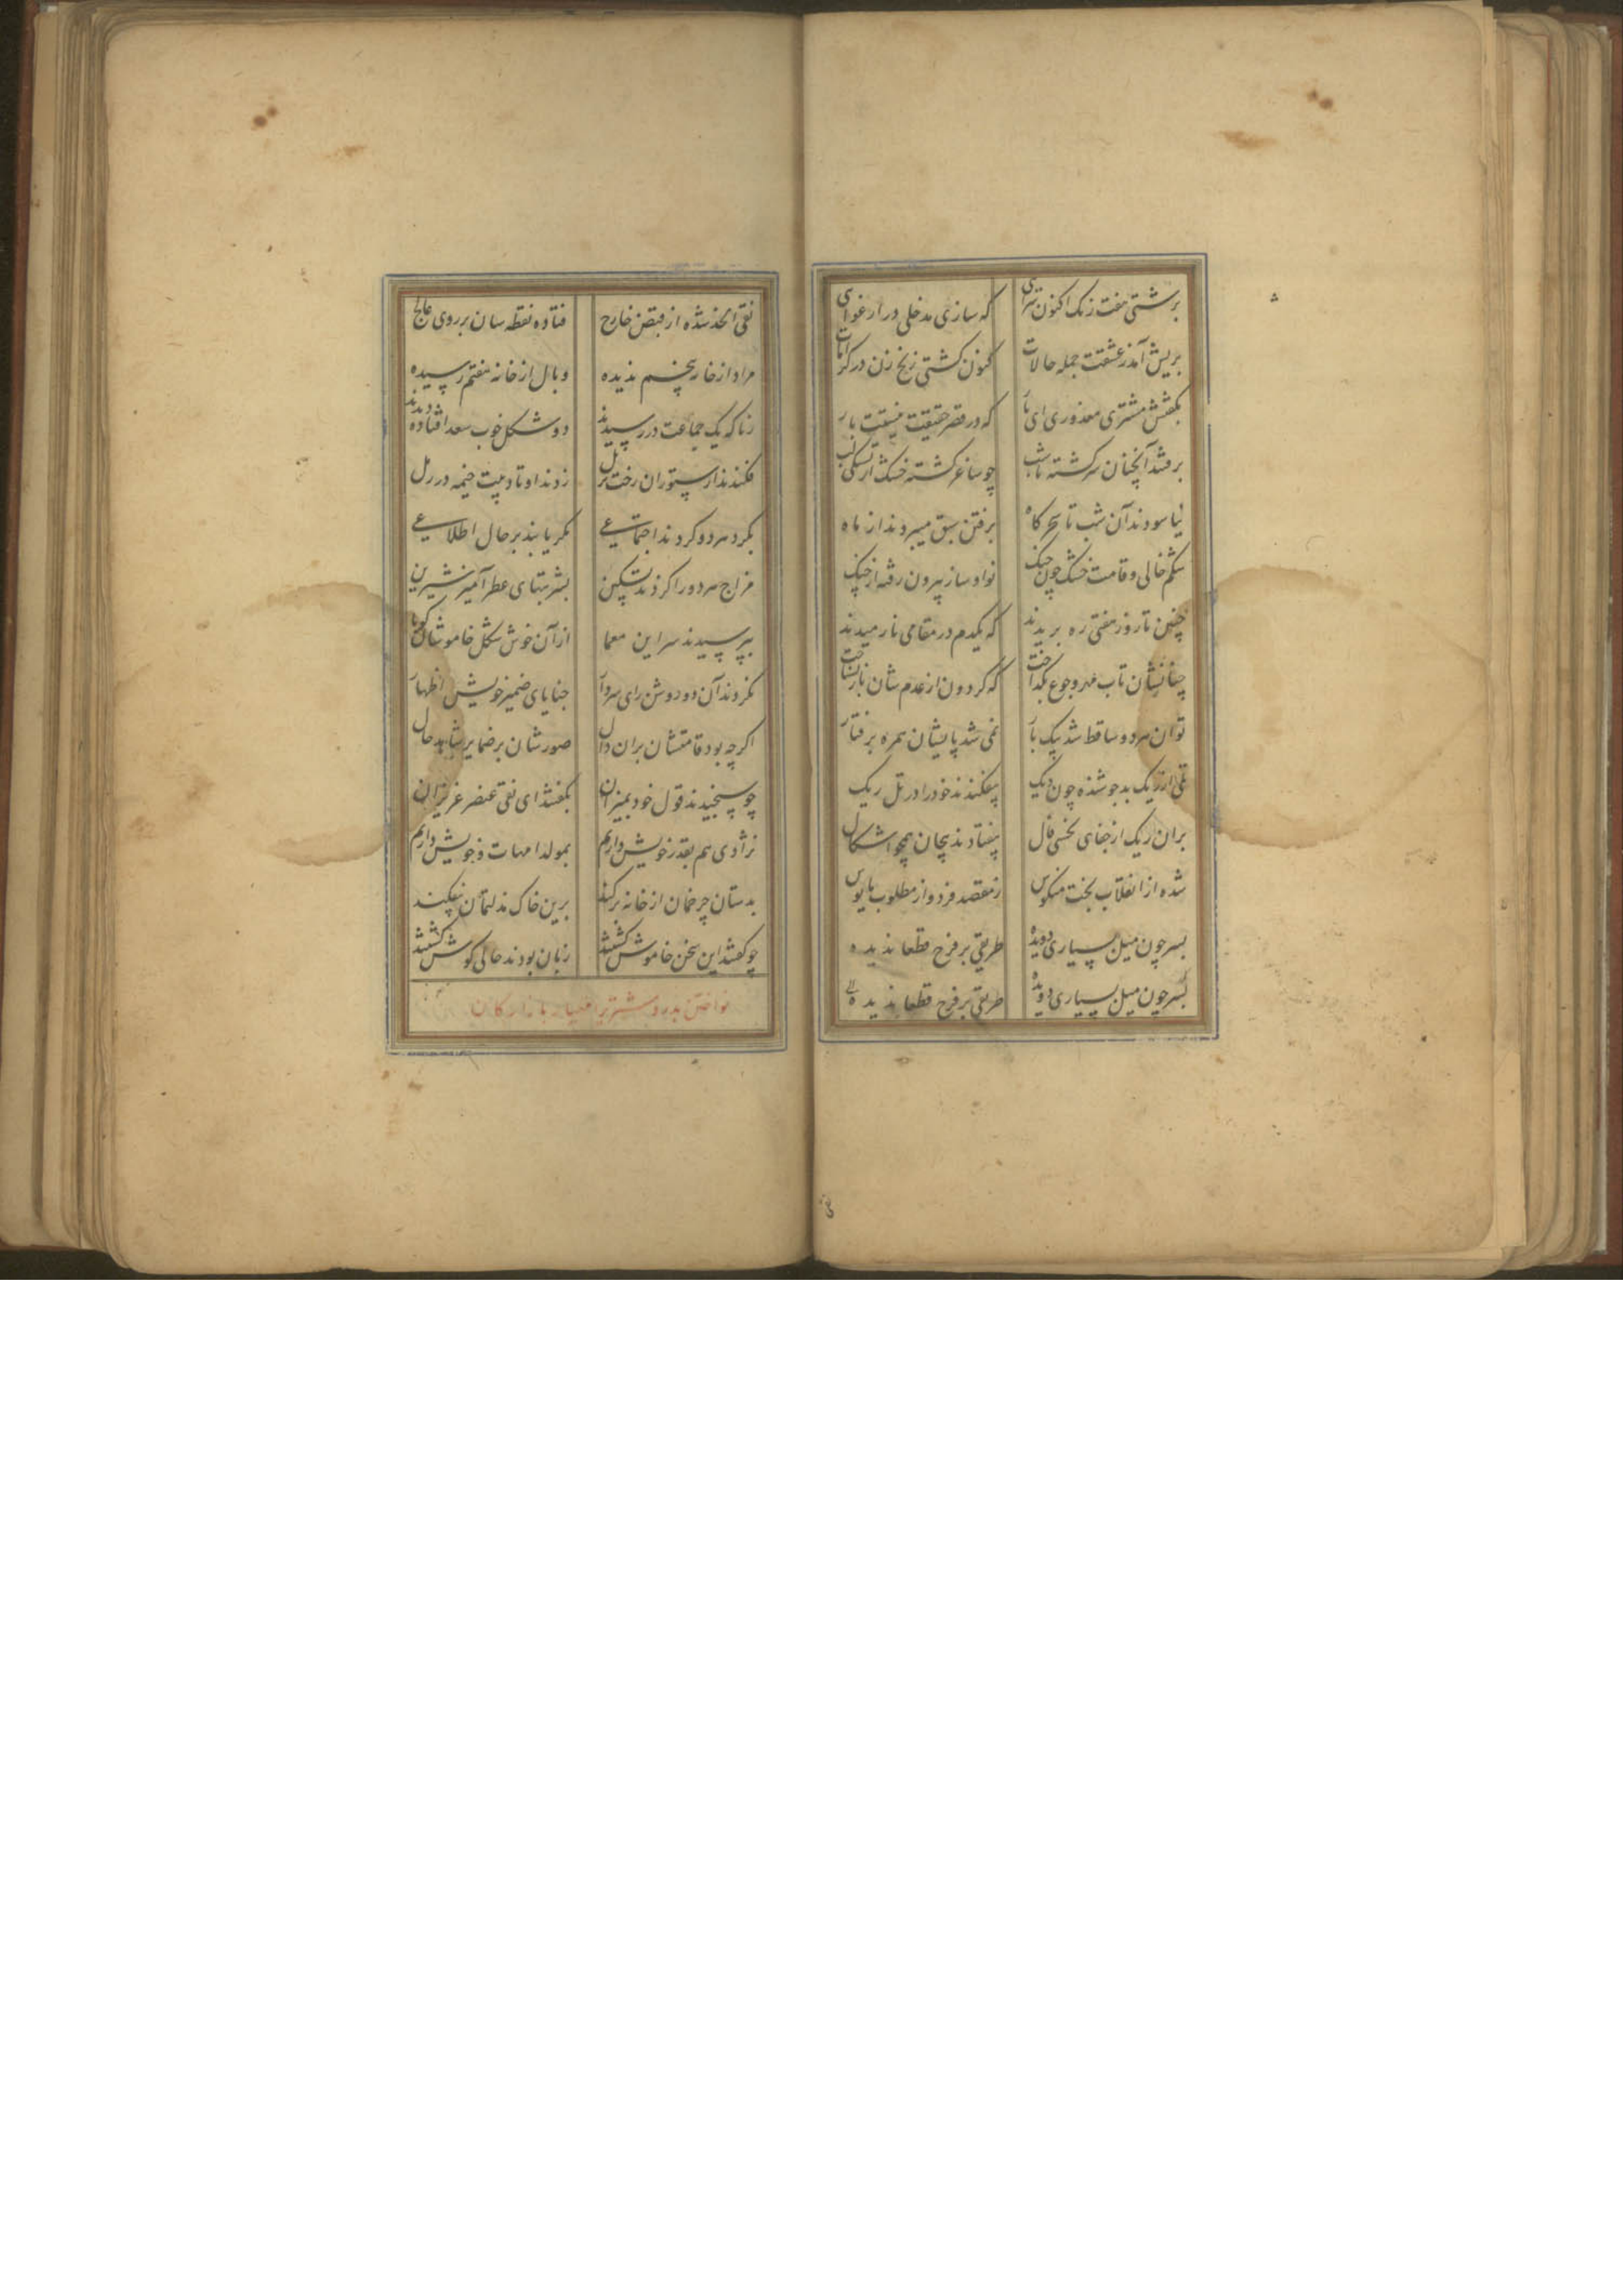 برشتی هفت زنک اکنون سرای که سازی مدخلی در ارغوای
بریش آمد ز عشقت جمله حالات کنون کشتی زنخ زن در کرامات
بکفتش مشتری معذوری ای یار که در قصر حقیقت نیستت بار
برفتند آنچنان سرکشته تا شب چو ساغر کشته خشک از تشنکی لب
نیاسودند آن شب تا سحرکاه برفتن سبق میبردند از ماه
شکم خالی و قامت خشک چون چنک نوا و ساز بیرون رفته از چنک
چنین تا روز هفتی ره بریدند که یکدم در مقامی نارمیدند
چنانشان تاب مهر و جوع بکداخت که کردون از عدم شان باز نشناخت
توان هر دو ساقط شد بیک بار نمی شد پایشان همره برفتار
تلی از ریک بد جوشنده چون دیک بیفکندند خود را در تل ریک
بران ریک از جفای نحسی فال بیفتادند بیجان همچو اشکال
شده از انقلاب بخت منکوس ز مقصد فرد و از مطلوب مایوس
بسر چون میل بسیاری دویده طریقی بر فرح قطعا ندیده
بسر چون میل بسیاری دویده طریقی بر فرح قطعا ندیده
نقی الخد شده از قبض خارج فتاده نقطه سان بر روی عالج
مراد از خار پنجم ندیده وبال از خانه هفتم رسیده
زناکه یک جماعت در رسیدند دو شکل خوب سعد افتاده دیدند
فکندند از ستوران رخت بر رمل زدند اوتاد بیت خیمه در رمل
بکرد هر دو کردند اجتماعی مکر یابند بر حال اطلاعی
مزاج هر دو را کردند تسکین بشربتهای عطرآمیز شیرین
بپرسیدند سر این معما از آن خوش شکل خاموشان کویا
نکردند آن دو روشن رای سردار خبایای ضمیر خویش اظهار
اکرچه بود قامتشان بران دال صورشان بر ضمایر شاهد حال
چو سنجیدند قول خود بمیزان بکفتند ای نقی عنصر عزیزان
نژادی هم بقدر خویش داریم بمولد امهات و خویش داریم
بدستان چرخمان از خانه برکند برین خاک مذلتمان بیفکند
چو کفتند این سخن خاموش کشتند زبان بودند حالی کوش کشتند
نواختن بدر و مشتری را مهیار بازارکان